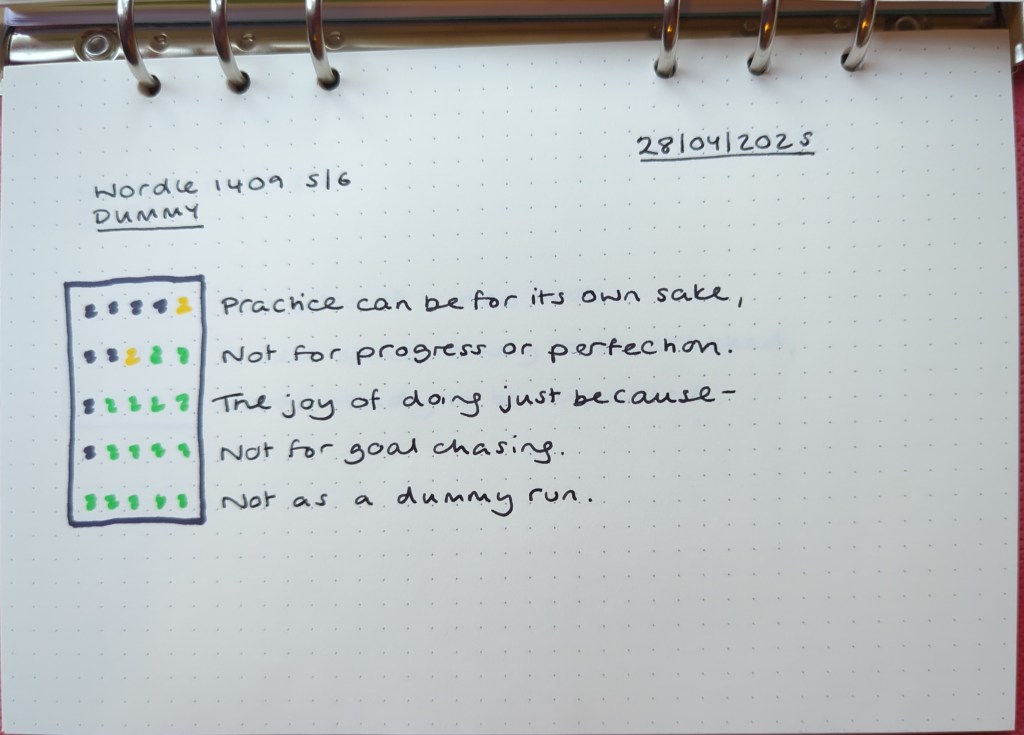 28/04/2025
Wordle 1409 5/6
DUMMY
Practice can be for its own sake,
Not for progress or perfection.
The joy of doing just because-
Not for goal chasing.
Not as a dummy run.